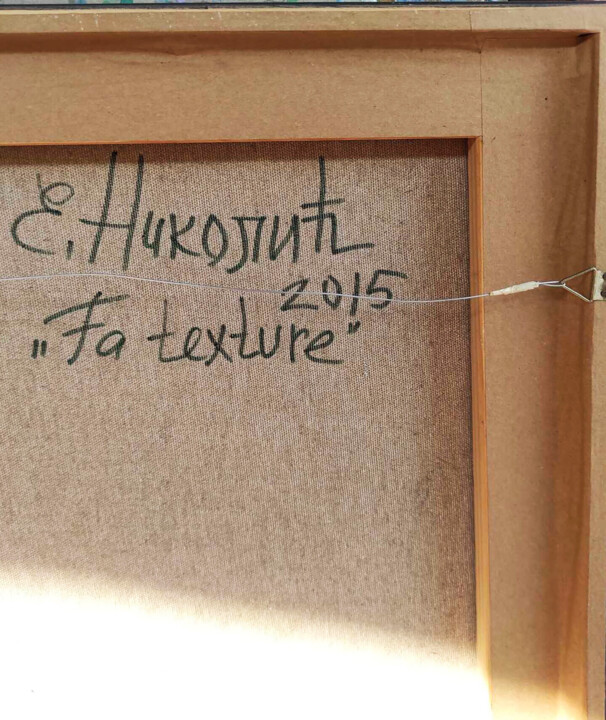 Ё. Николић
2015
„Fa texture"